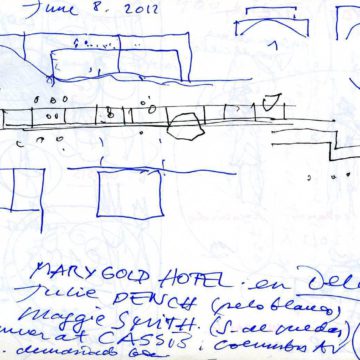 June 8. 2012
MARY GOLD HOTEL. en
Julie DENCH (pelo blanco)
Maggie SMITH. (S. de ruedas)
at CASSIS. Columbus Av
demasiado